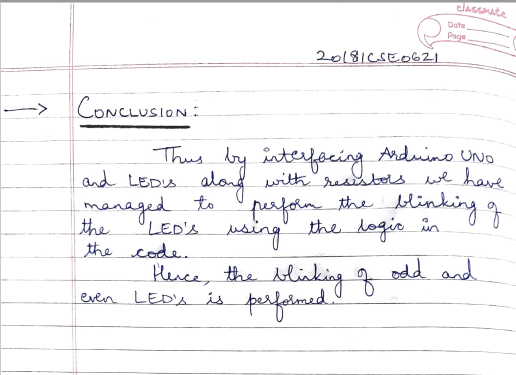 classmate
Date
Page
20181CSE0621
→ CONCLUSION:
Thus by interfacing Arduino UNO
and LED's along with resistors we have
managed to perform the blinking of
the LED's using the logic in
the code.
Hence, the blinking of odd and
even LED's is performed.